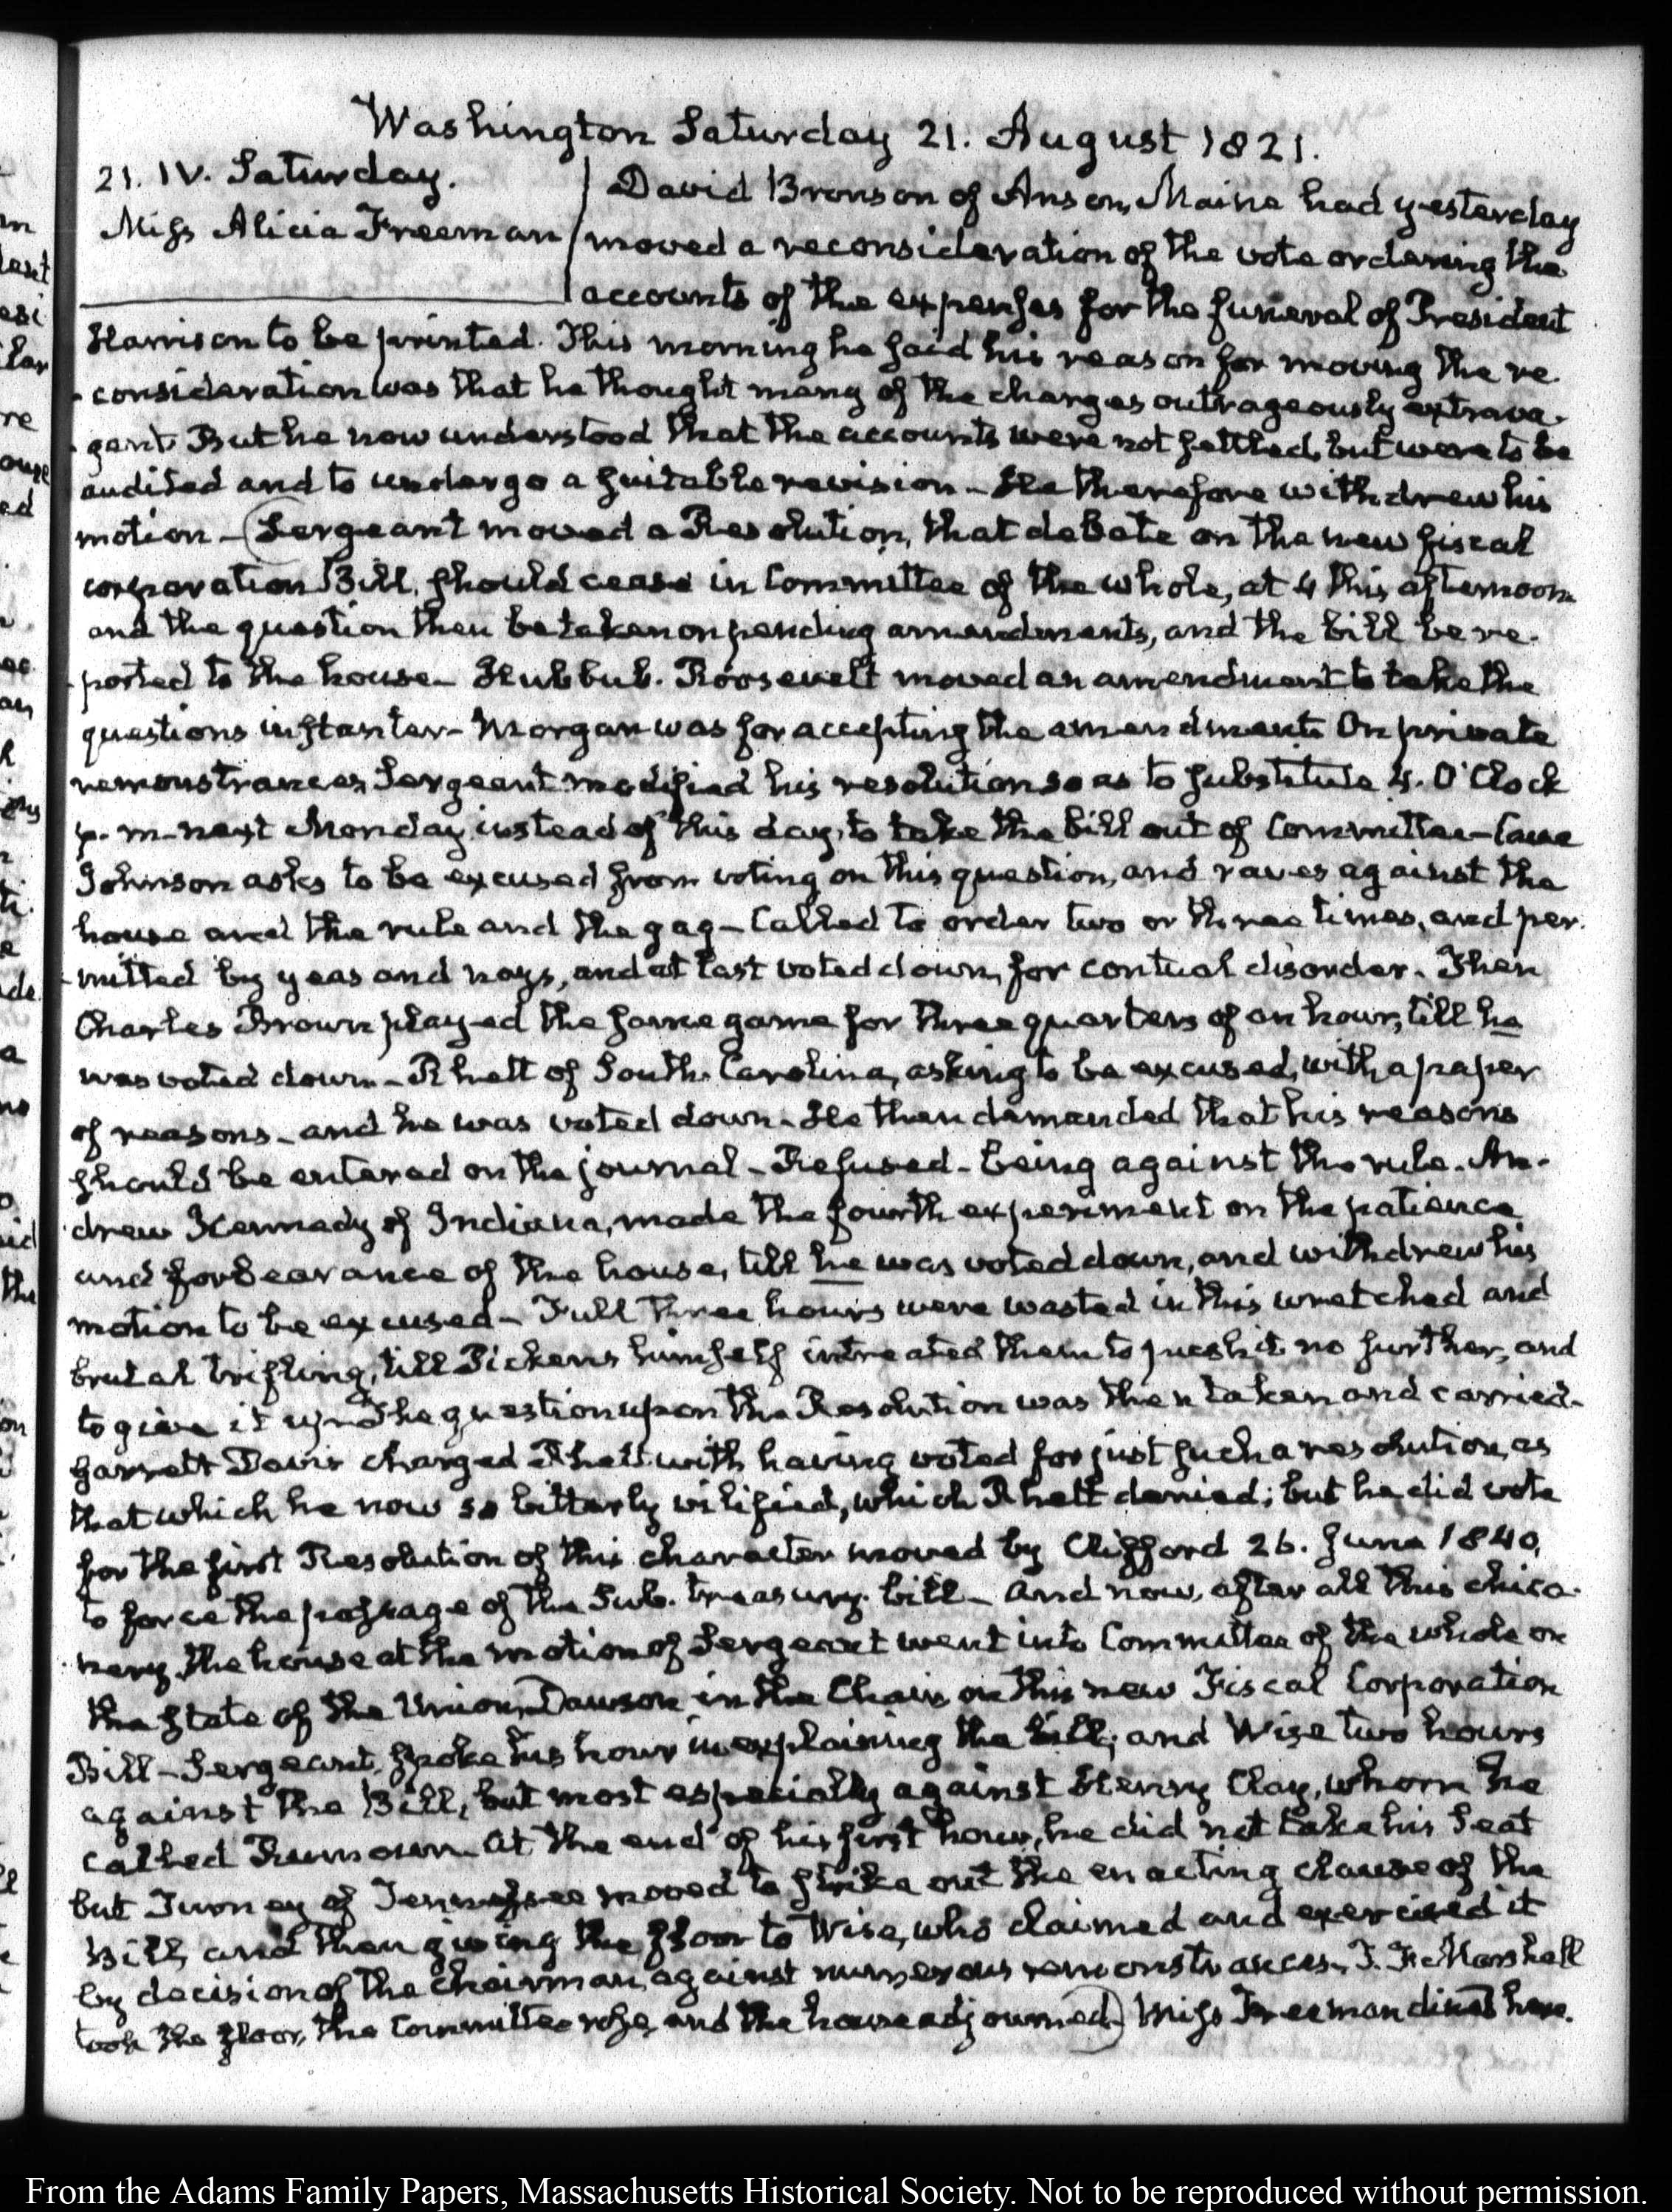 Washington Saturday 21. August 1821.
21. IV. Saturday.
Miss Alicia Freeman
David Bronson of Anson, Maine had yesterday
moved a reconsideration of the vote ordering the
accounts of the expenses for the funeral of President
Harrison to be printed. This morning he said his reason for moving the re-
-consideration was that he thought many of the charges outrageously extrava-
-gant. But he now understood that the accounts were not settled, but were to be
audited and to undergo a suitable revision - He therefore withdrew his
motion - (Sergeant moved a Resolution, that debate on the new fiscal
corporation Bill, should cease in Committee of the whole, at 4 this afternoon
and the question then be taken on pending amendments, and the bill be re-
-ported to the house - Hubbub. Roosevelt moved an amendment to take the
questions instanter - Morgan was for accepting the amendment. On private
remonstrances, Sergeant modified his resolution so as to substitute 4. O'Clock
p.m. next Monday, instead of this day, to take the bill out of Committee - Cave
Johnson asks to be excused from voting on this question, and raves against the
house and the rule and the gag - Called to order two or three times, and per-
-mitted by yeas and nays, and at last voted down, for contual disorder. Then
Charles Brown played the same game for three quarters of an hour, till he
was voted down - Rhett of South Carolina, asking to be excused, with a paper
of reasons - and he was voted down - He then demanded that his reasons
should be entered on the journal - Refused - being against the rule. An-
-drew Kennedy of Indiana, made the fourth experiment on the patience
and forbearance of the house, till he was voted down, and withdrew his
motion to be excused - Full three hours were wasted in this wretched and
brutal trifling, till Pickens himself intreated them to push it no further, and
to give it up. The question upon the Resolution was then taken and carried -
Garrett Davis charged Rhett with having voted for just such a resolution, as
that which he now so bitterly vilified, which Rhett denied; but he did vote
for the first Resolution of this character moved by Clifford 26. June 1840,
to force the passage of the Sub. treasury. bill - and now, after all this chica-
-nery, the house at the motion of Sergeant went into Committee of the whole on
the State of the Union, Dawson in the Chair on this new Fiscal Corporation
Bill - Sergeant, spoke his hour in explaining the bill; and Wise two hours
against the Bill, but most especially against Henry Clay, whom he
called - At the end of his first hour, he did not take his Seat
but Turney of Tennessee moved to strike out the enacting clause of the
Bill, and then giving the floor to Wise, who claimed and exercised it
by decision of the chairman, against numerous remonstrances. T. F. Marshall
took the floor, the Committee rose, and the house adjourned.) Miss Freeman dined here.
From the Adams Family Papers, Massachusetts Historical Society. Not to be reproduced without permission.